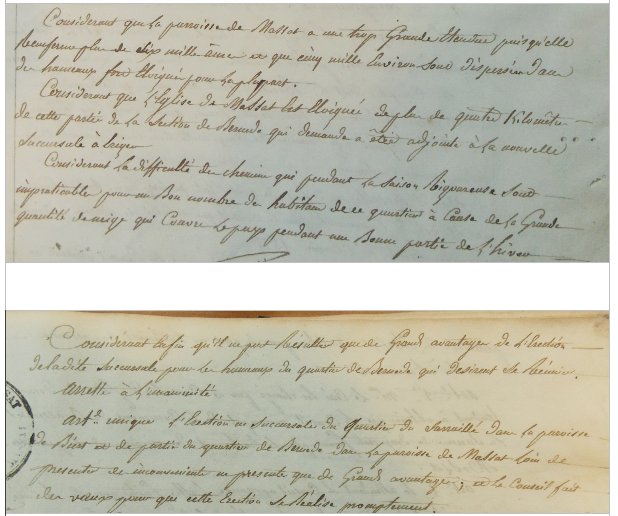 Considérant que la parroisse de Massat a une trop Grande Etendue puisqu'elle
Renferme plus de Dix mille âme et que cinq mille Environ sont dispersées dans
des hameaux fort Eloignés pour la plupart.
Considérant que L'Eglise de Massat Est Eloignée de plus de quatre Kilomètre
de cette partie de la Section de Bernede qui demande a être adjointe à la nouvelle
succursale à Eriger
Considérant la difficulté des chemins qui pendant la saison Rigoureuse sont
impraticables pour un Bon nombre des habitans de ce quartier à Cause de la Grande
quantité de neige qui Couvre Le pays pendant une Bonne partie de L'hiver
Considérant Enfin qu'il ne peut Résulter que de Grands avantages de L'Erection
de la dite succursale pour les hameaux du quartier de Bernede qui désirent se Réunir.
Arrette à L'unanimité
Art. unique L'Erection en Succursale du Quartier du Sarraillé dans la paroisse
de Biert et de partie du quartier de Bernede dans La paroisse de Massat loin de
présenter des inconvéniens ne présente que de Grands avantages; et le Conseil fait
des vœux pour que cette Erection se Réalise promptement.